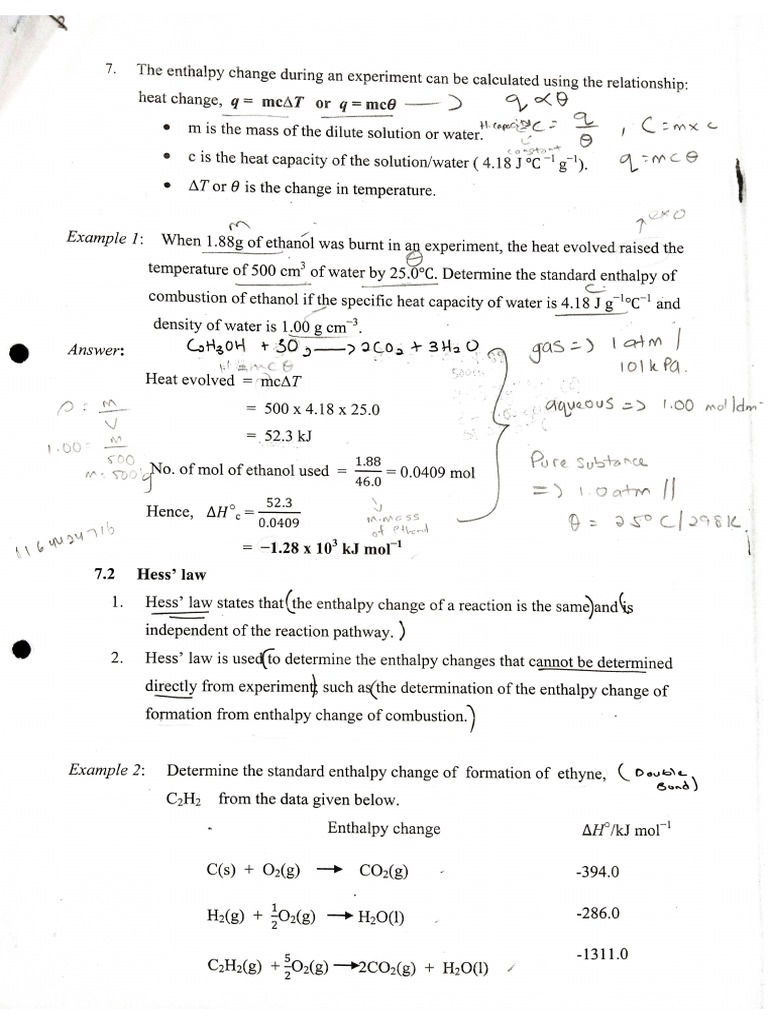 7. The enthalpy change during an experiment can be calculated using the relationship:
heat change, q = mcΔT or q = mcθ ⟶ q ∝ θ
• m is the mass of the dilute solution or water. H. capacity C = q/θ , C = m x c
• c is the heat capacity of the solution/water ( 4.18 J °C⁻¹ g⁻¹). constant q = mcθ
• ΔT or θ is the change in temperature.
↑ exo
m
Example 1: When 1.88g of ethanol was burnt in an experiment, the heat evolved raised the
θ
temperature of 500 cm³ of water by 25.0°C. Determine the standard enthalpy of
c
combustion of ethanol if the specific heat capacity of water is 4.18 J g⁻¹°C⁻¹ and
density of water is 1.00 g cm⁻³.
Answer: C₂H₅OH + 3O₂ ⟶ 2CO₂ + 3H₂O
gas => 1 atm /
101 kPa.
Heat evolved = mcΔT
ρ = m/V
= 500 x 4.18 x 25.0
aqueous => 1.00 mol/dm
= 52.3 kJ
1.00 = m/500
m = 500g
No. of mol of ethanol used = 1.88/46.0 = 0.0409 mol
Pure subtance
=> 1.0 atm //
θ = 25°C/298K.
Hence, ΔH°c = 52.3/0.0409
m.mass
of ethanol
= −1.28 x 10³ kJ mol⁻¹
7.2 Hess' law
1. Hess' law states that (the enthalpy change of a reaction is the same) and (is
independent of the reaction pathway. )
2. Hess' law is used (to determine the enthalpy changes that cannot be determined
directly from experiment) such as (the determination of the enthalpy change of
formation from enthalpy change of combustion.)
Example 2: Determine the standard enthalpy change of formation of ethyne, ( Double
Bond)
C₂H₂ from the data given below.
Enthalpy change ΔH°/kJ mol⁻¹
C(s) + O₂(g) ⟶ CO₂(g) -394.0
H₂(g) + ½O₂(g) ⟶ H₂O(l) -286.0
C₂H₂(g) + 5/2O₂(g) ⟶ 2CO₂(g) + H₂O(l) -1311.0